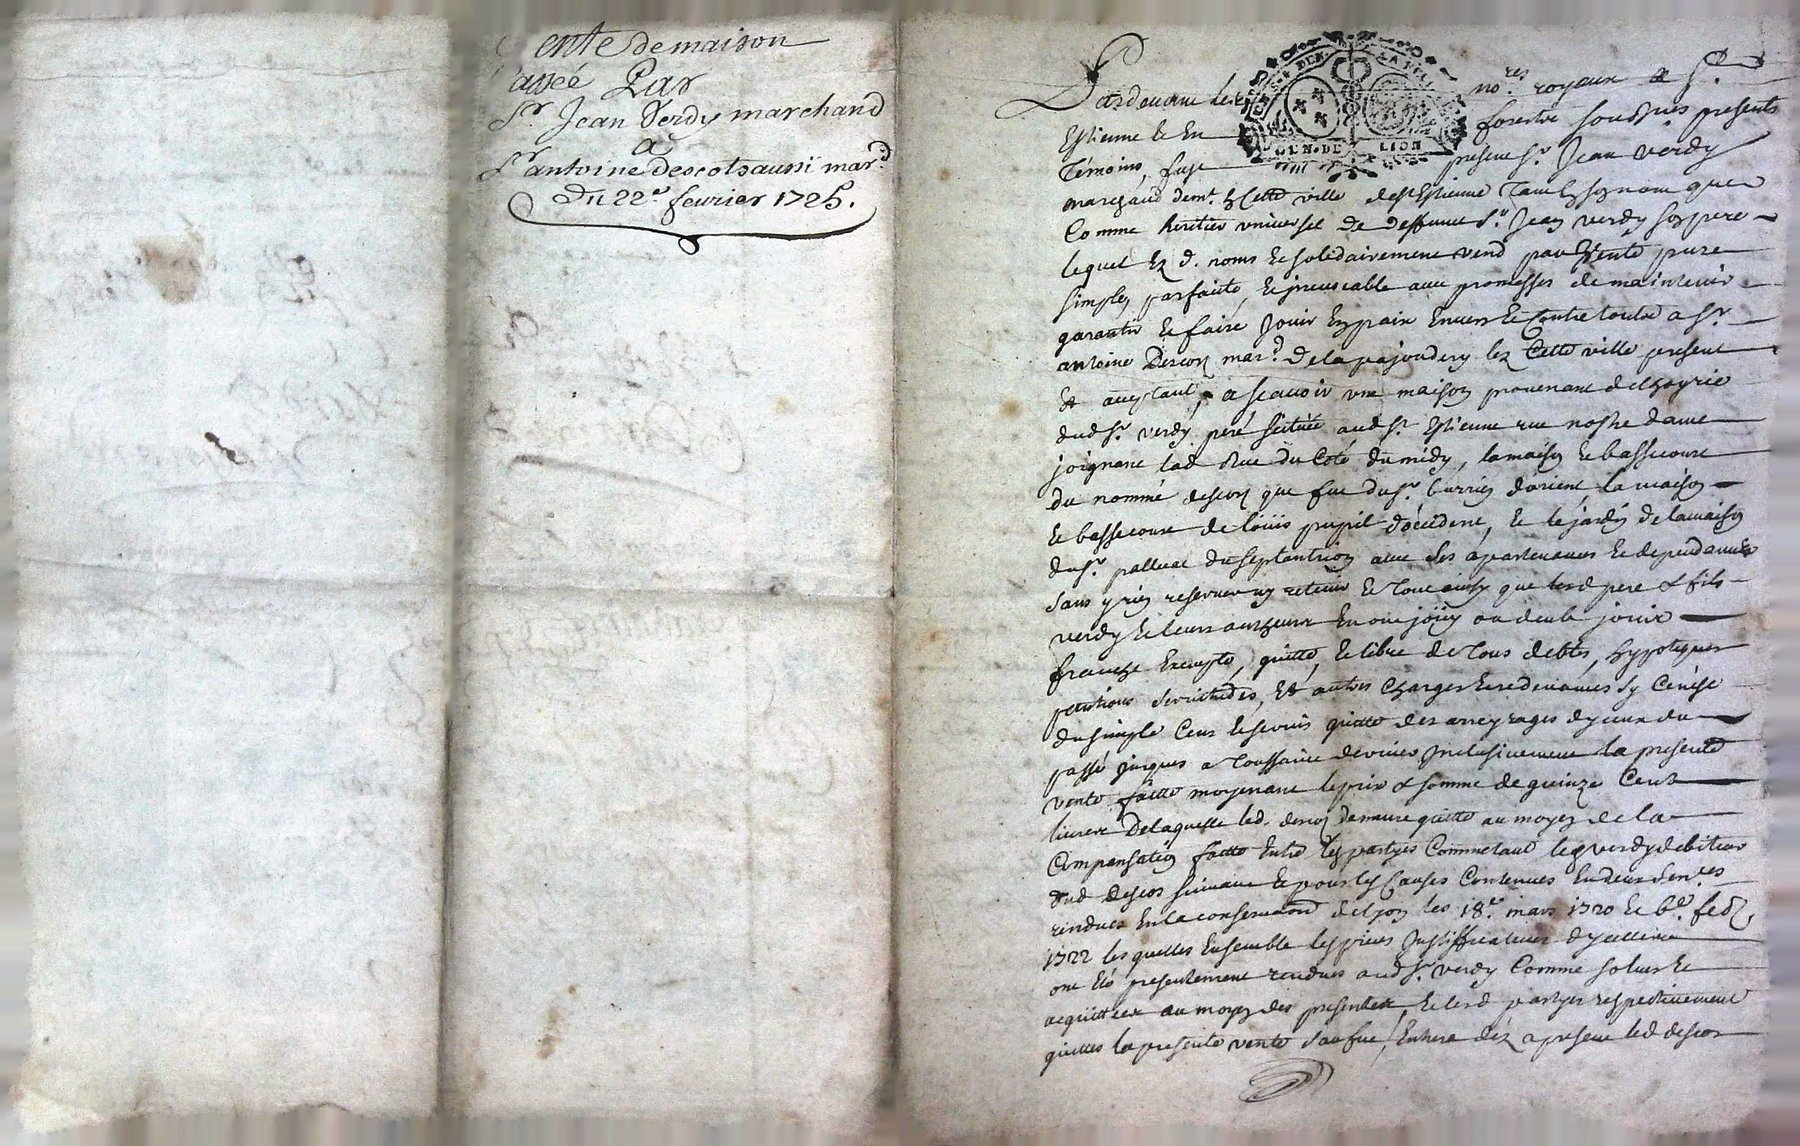 ente de maison
passée Par
Sr. Jean Verdy marchand
a
Sr antoine descots aussi mard.
Du 22e. fevrier 1725.
Pardevant les nores. royaux a St.
Estienne le en forestz soubsnes presents
Témoins, fust present Sr. Jean Verdy
marchand demt. en cette ville de St Estienne tant en son nom que
Comme heritier universel de deffunct Sr. Jean verdy son pere
lequel es d. noms et solidairement vend par Vente pure
simple, parfaite, et jrrevocable avec promesses de maintenir
garantir et faire jouir en paix Envers et Contre toutes a Sr.
antoine Descos mard. de la pajondery lez Cette ville present
et aceptant, a scavoir une maison provenant de l'hoyrie
dud Sr. verdy pere scituée aud St. Estienne rue nostre dame
joignant lad Rue du Coté du midy, la maison et bassecourt
du nommé descos que fut du Sr. d'orient la maison
et bassecourt de Loüis pupil d'occident, et le jardin de la maison
du Sr. palluat du septantrion avec ses apartenances et dependances
sans y rien reserver ny retenir et tout ainsy que lesd pere & fils
verdy et leurs autheurs En ont joüy ou deub jouir
franche Exempte, quitte, et libre de tous debtes, hypoteques
pentions servitudes, et autres charges et redevances sy Ce n'est
du simple Cens et servis quitte des arreyrages d'yceux du
passé jusques a Toussaints dernier Inclusivement la presente
vente faitte moyenant le prix & somme de quinze Cents
livres De laquelle led. descos demeure quitte au moyen de la
Compensation faitte Entre les partyes Comme tant led verdy debiteur
dud descos suivant et pour les Causes Contenues En deux sences
rendues En la conservation de Lyon les 18e. mars 1720 et
1722 lesquelles Ensemble les pieces Justifficatives d'ycelles
ont eté presentement rendues aud Sr. verdy Comme solues et
acquittées au moyen des presentes, et lesd partyes respectivement
quittes la presente vente Entrera déz a present led descos